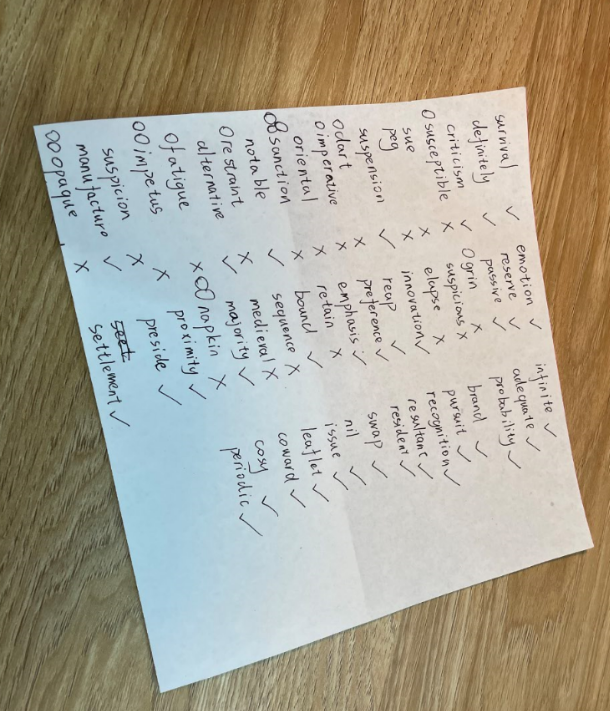 survival ✓
definitely ✓
criticism ✓
O susceptible ×
sue ×
peg ×
suspension ✓
O dart ×
O imperative ×
oriental ×
OO sanction ×
notable ✓
O restraint ×
alternative ✓
O fatigue ×
OO impetus ×
suspicion ×
manufacturo ✓
OO opaque ×
emotion ✓
reserve ✓
passive ✓
O grin ×
suspicious ×
elapse ×
innovation ✓
reap ✓
preference ✓
emphasis ✓
retain ×
bound ✓
sequence ×
medieval ×
majority ✓
OO napkin ×
proximity ✓
preside ✓
settlement ✓
infinite ✓
adequate ✓
probability ✓
brand ✓
pursuit ✓
recognition ✓
resultant ✓
resident ✓
swap ✓
nil ✓
issue ✓
leaflet ✓
coward ✓
cosy ✓
periodic ✓